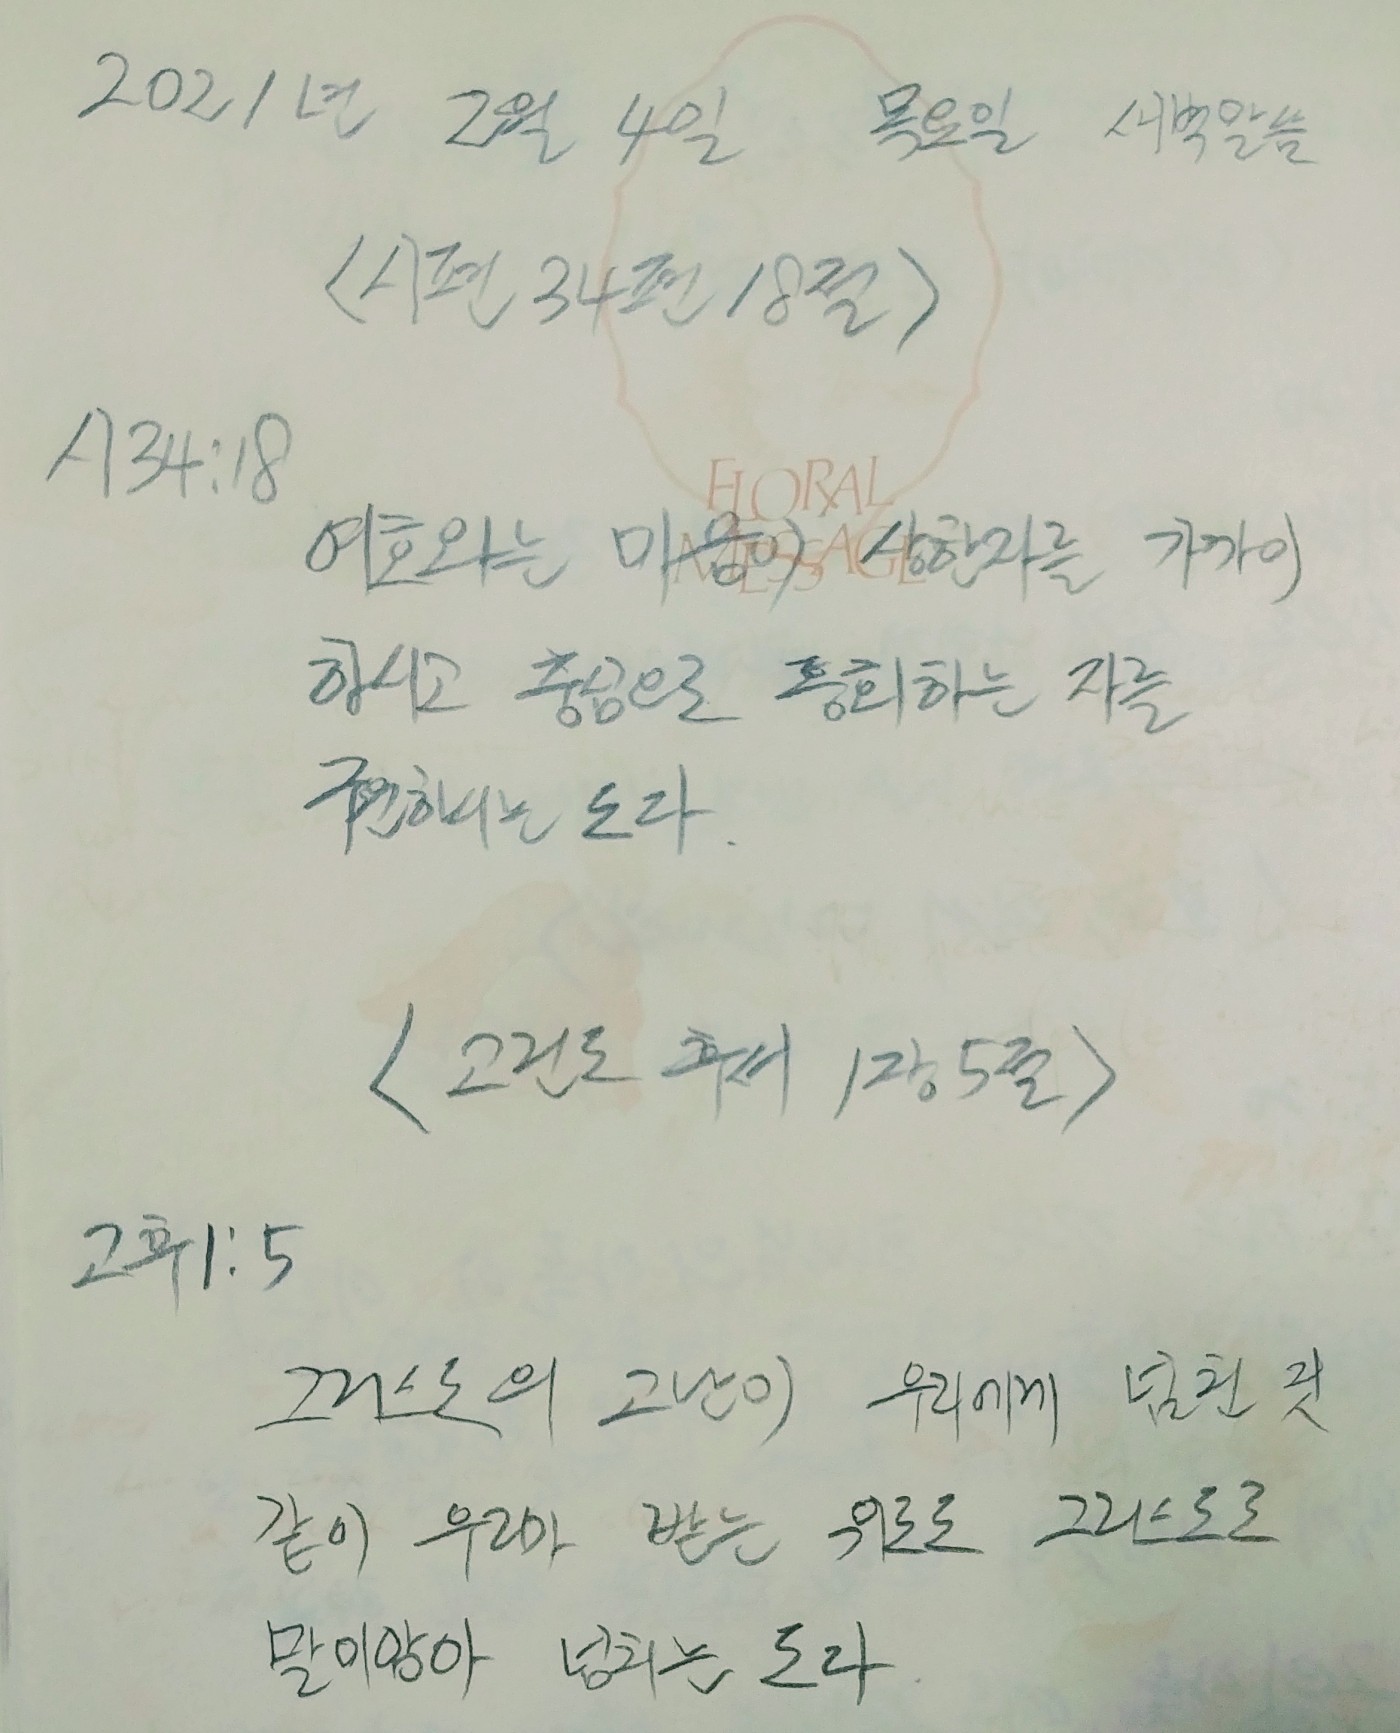 2021년 2월 4일 목요일 새벽말씀
<시편 34편 18절>
시34:18
FLORAL
MESSAGE
여호와는 마음이 상한자를 가까이
하시고 중심으로 통회하는 자를
구원하시는 도다.
<고린도 후서 1장 5절>
고후1:5
그리스도의 고난이 우리에게 넘친 것
같이 우리가 받는 위로도 그리스도로
말미암아 넘치는 도다.